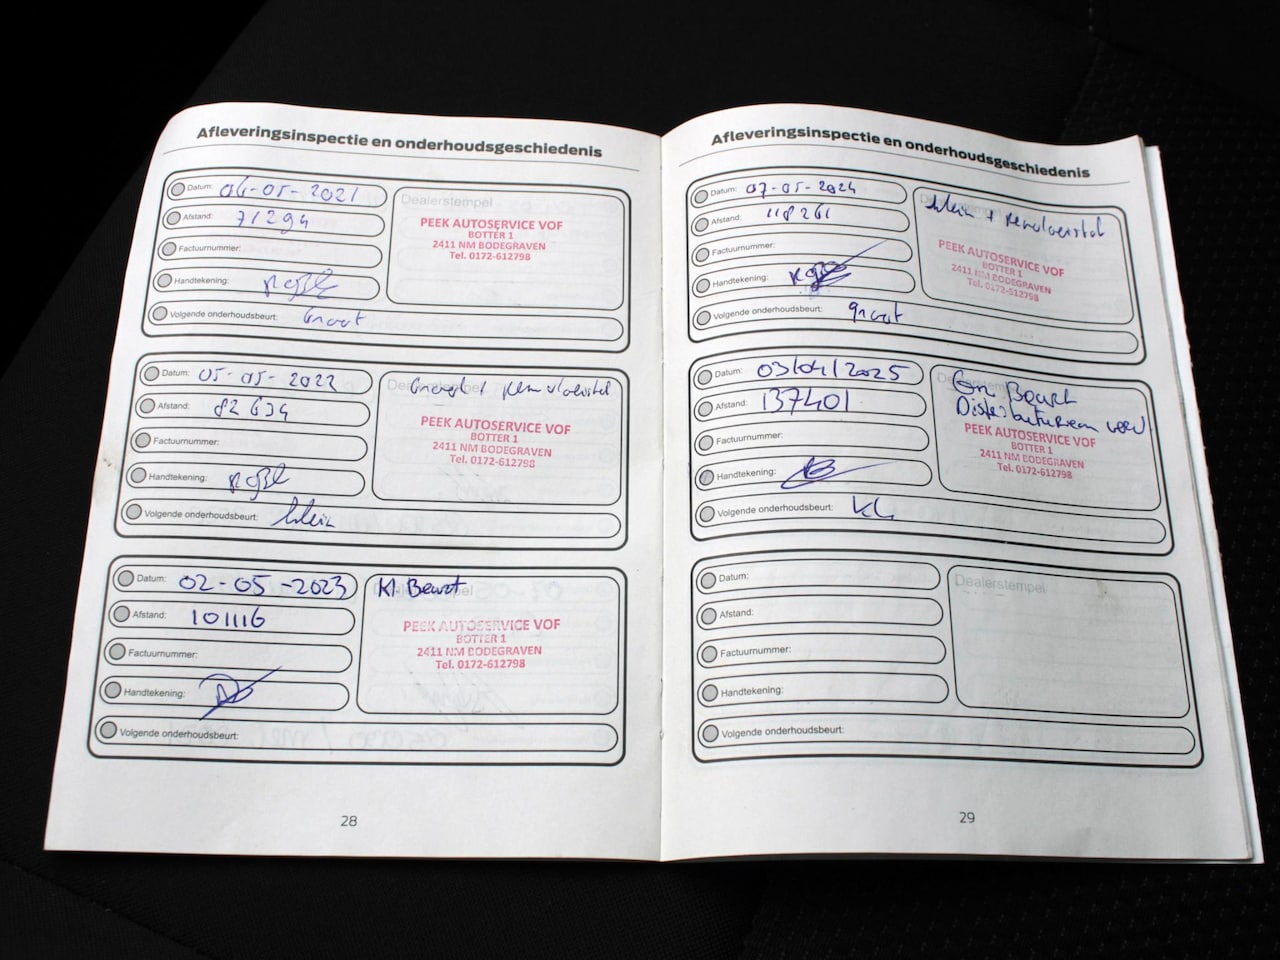 Afleveringsinspectie en onderhoudsgeschiedenis
Datum: 04-05-2021
Afstand: 71294
Factuurnummer:
Handtekening:
Volgende onderhoudsbeurt: Groot
Dealerstempel
PEEK AUTOSERVICE VOF
BOTTER 1
2411 NM BODEGRAVEN
Tel. 0172-612798
Datum: 05-05-2022
Afstand: 82634
Factuurnummer:
Handtekening:
Volgende onderhoudsbeurt: klein
Dealerstempel
Groot + remvloeistof
PEEK AUTOSERVICE VOF
BOTTER 1
2411 NM BODEGRAVEN
Tel. 0172-612798
Datum: 02-05-2023
Afstand: 101116
Factuurnummer:
Handtekening:
Volgende onderhoudsbeurt:
Dealerstempel
Kl. Beurt
PEEK AUTOSERVICE VOF
BOTTER 1
2411 NM BODEGRAVEN
Tel. 0172-612798
28
Afleveringsinspectie en onderhoudsgeschiedenis
Datum: 07-05-2024
Afstand: 118261
Factuurnummer:
Handtekening:
Volgende onderhoudsbeurt: groot
Dealerstempel
klein + remvloeistof
PEEK AUTOSERVICE VOF
BOTTER 1
2411 NM BODEGRAVEN
Tel. 0172-612798
Datum: 03/04/2025
Afstand: 137401
Factuurnummer:
Handtekening:
Volgende onderhoudsbeurt: KL
Dealerstempel
Gr. Beurt
PEEK AUTOSERVICE VOF
BOTTER 1
2411 NM BODEGRAVEN
Tel. 0172-612798
Datum:
Afstand:
Factuurnummer:
Handtekening:
Volgende onderhoudsbeurt:
Dealerstempel
29